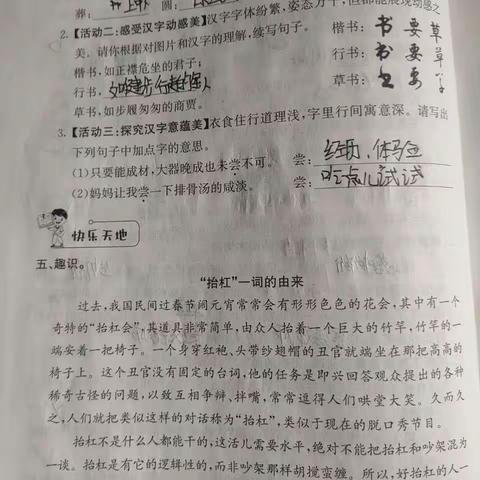 葬: 圆:
2.【活动二:感受汉字动感美】汉字字体纷繁,姿态万千,但都能展现动感之
美。请你根据对图片和汉字的理解,续写句子。
楷书,如正襟危坐的君子;
行书,
草书,如步履匆匆的商贾。
楷书: 书 要 草
行书: 书 要 草
草书: 书 要 草
3.【活动三:探究汉字意蕴美】衣食住行道理浅,字里行间寓意深。请写出
下列句子中加点字的意思。
(1)只要能成材,大器晚成也未尝不可。 尝: 经历、体验
(2)妈妈让我尝一下排骨汤的咸淡。 尝: 吃点儿试试
快乐天地
五、趣识。
“抬杠”一词的由来
过去,我国民间过春节闹元宵常常会有形形色色的花会,其中有一个
奇特的“抬杠会”,其道具非常简单,由众人抬着一个巨大的竹竿,竹竿的一
端安着一把椅子。一个身穿红袍、头带纱翅帽的丑官就端坐在那把高高的
椅子上。这个丑官没有固定的台词,他的任务是即兴回答观众提出的各种
稀奇古怪的问题,以致互相争辩、拌嘴,常常逗得人们哄堂大笑。久而久
之,人们就把类似这样的对话称为“抬杠”,类似于现在的脱口秀节目。
抬杠不是什么人都能干的,这活儿需要水平,绝对不能把抬杠和吵架混为
一谈。抬杠是有它的逻辑性的,而非吵架那样胡搅蛮缠。所以,好抬杠的人一